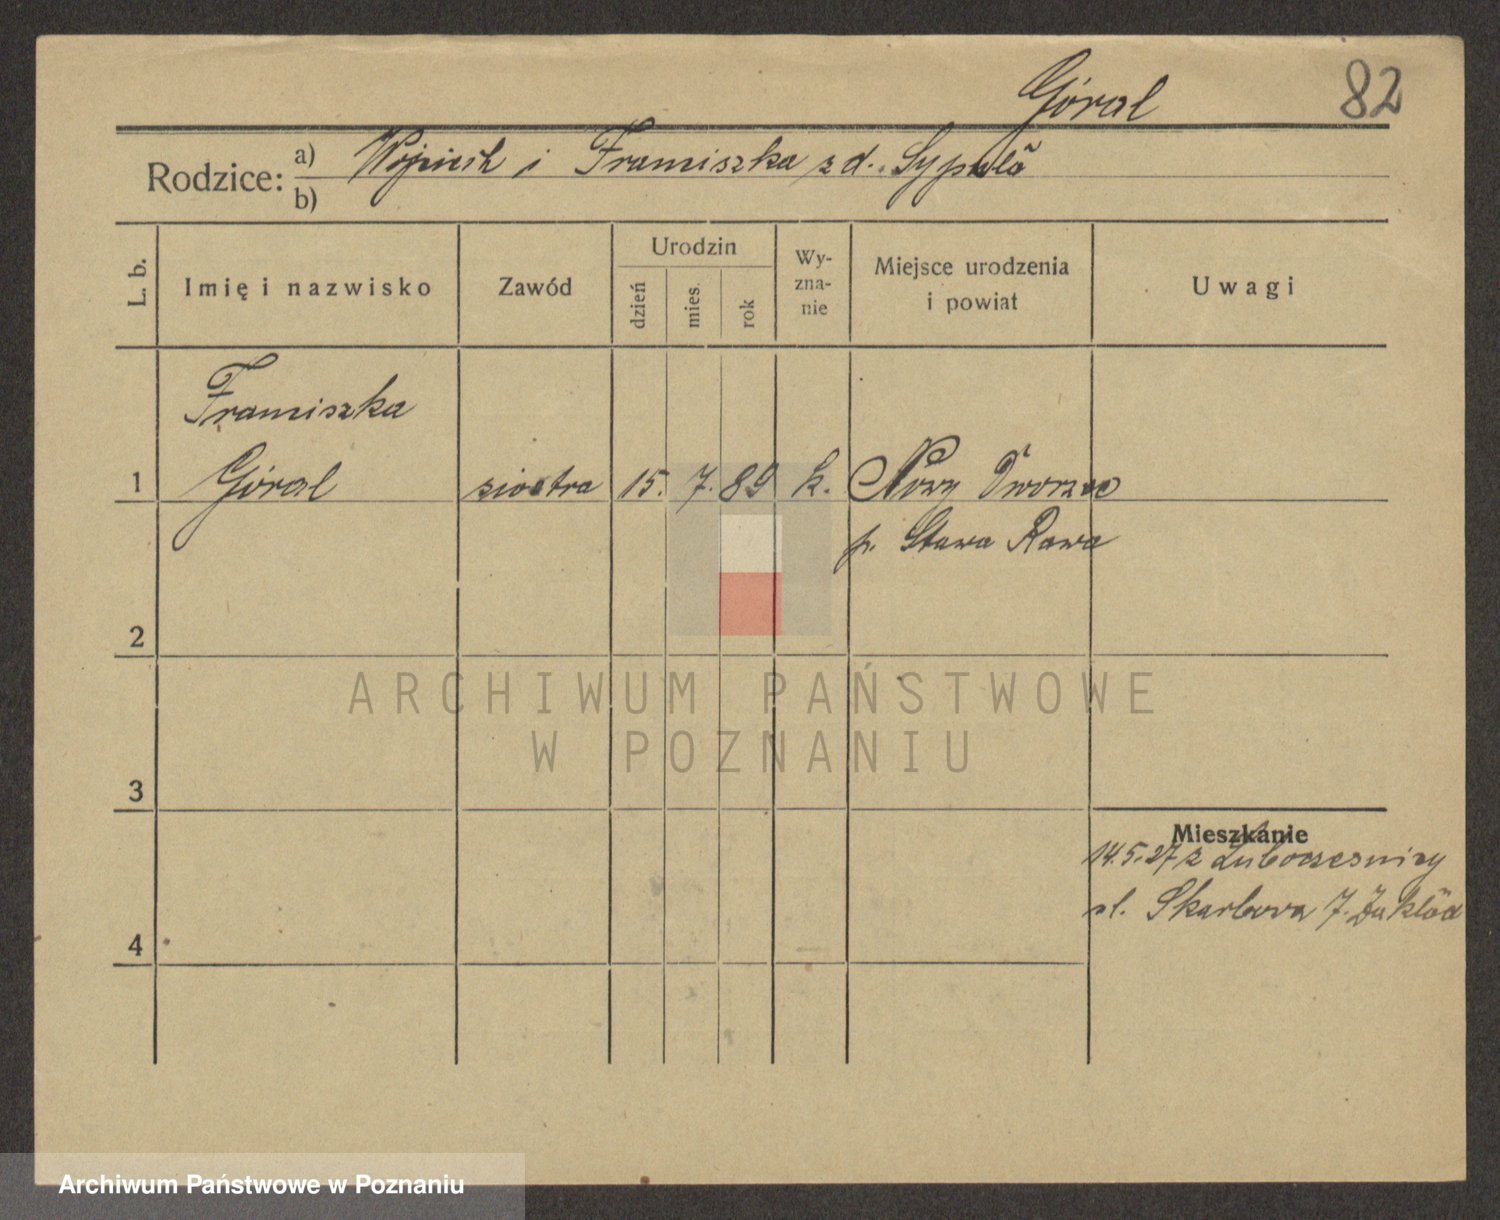 Góral 82
Rodzice: a) Wojciech i Franciszka z d. Sypuła
b)
L. b. Imię i nazwisko Zawód Urodzin dzień mies. rok Wy-
zna-
nie Miejsce urodzenia
i powiat Uwagi
Franciszka
1 Góral siostra 15. 7. 89 k. Nowy Dworzec
p. Stara Rawa
2
3
Mieszkanie
14.5.27 z
ul. Skarbowa 7. Zakład
4
ARCHIWUM PAŃSTWOWE
W POZNANIU
Archiwum Państwowe w Poznaniu